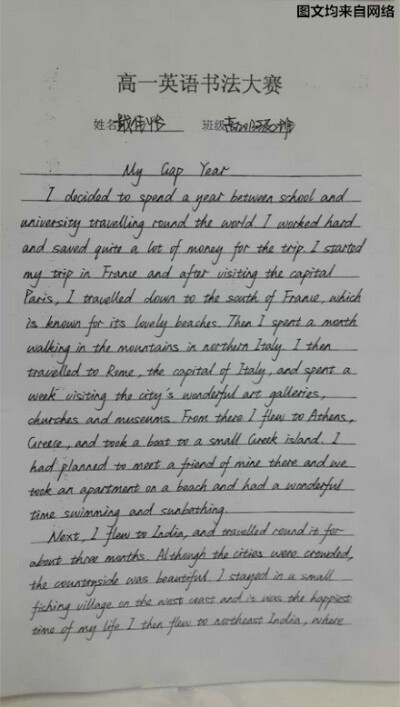 图文均来自网络
高一英语书法大赛
姓名 班级
My Gap Year
I decided to spend a year between school and
university travelling round the world. I worked hard
and saved quite a lot of money for the trip. I started
my trip in France and after visiting the capital
Paris, I travelled down to the south of France, which
is known for its lovely beaches. Then I spent a month
walking in the mountains in northern Italy. I then
travelled to Rome, the capital of Italy, and spent a
week visiting the city's wonderful art galleries,
churches and museums. From there I flew to Athens,
Greece, and took a boat to a small Greek island. I
had planned to meet a friend of mine there and we
took an apartment on a beach and had a wonderful
time swimming and sunbathing.
Next, I flew to India, and travelled round it for
about three months. Although the cities were crowded,
the countryside was beautiful. I stayed in a small
fiching village on the west coast and it was the happiest
time of my life. I then flew to northeast India, where